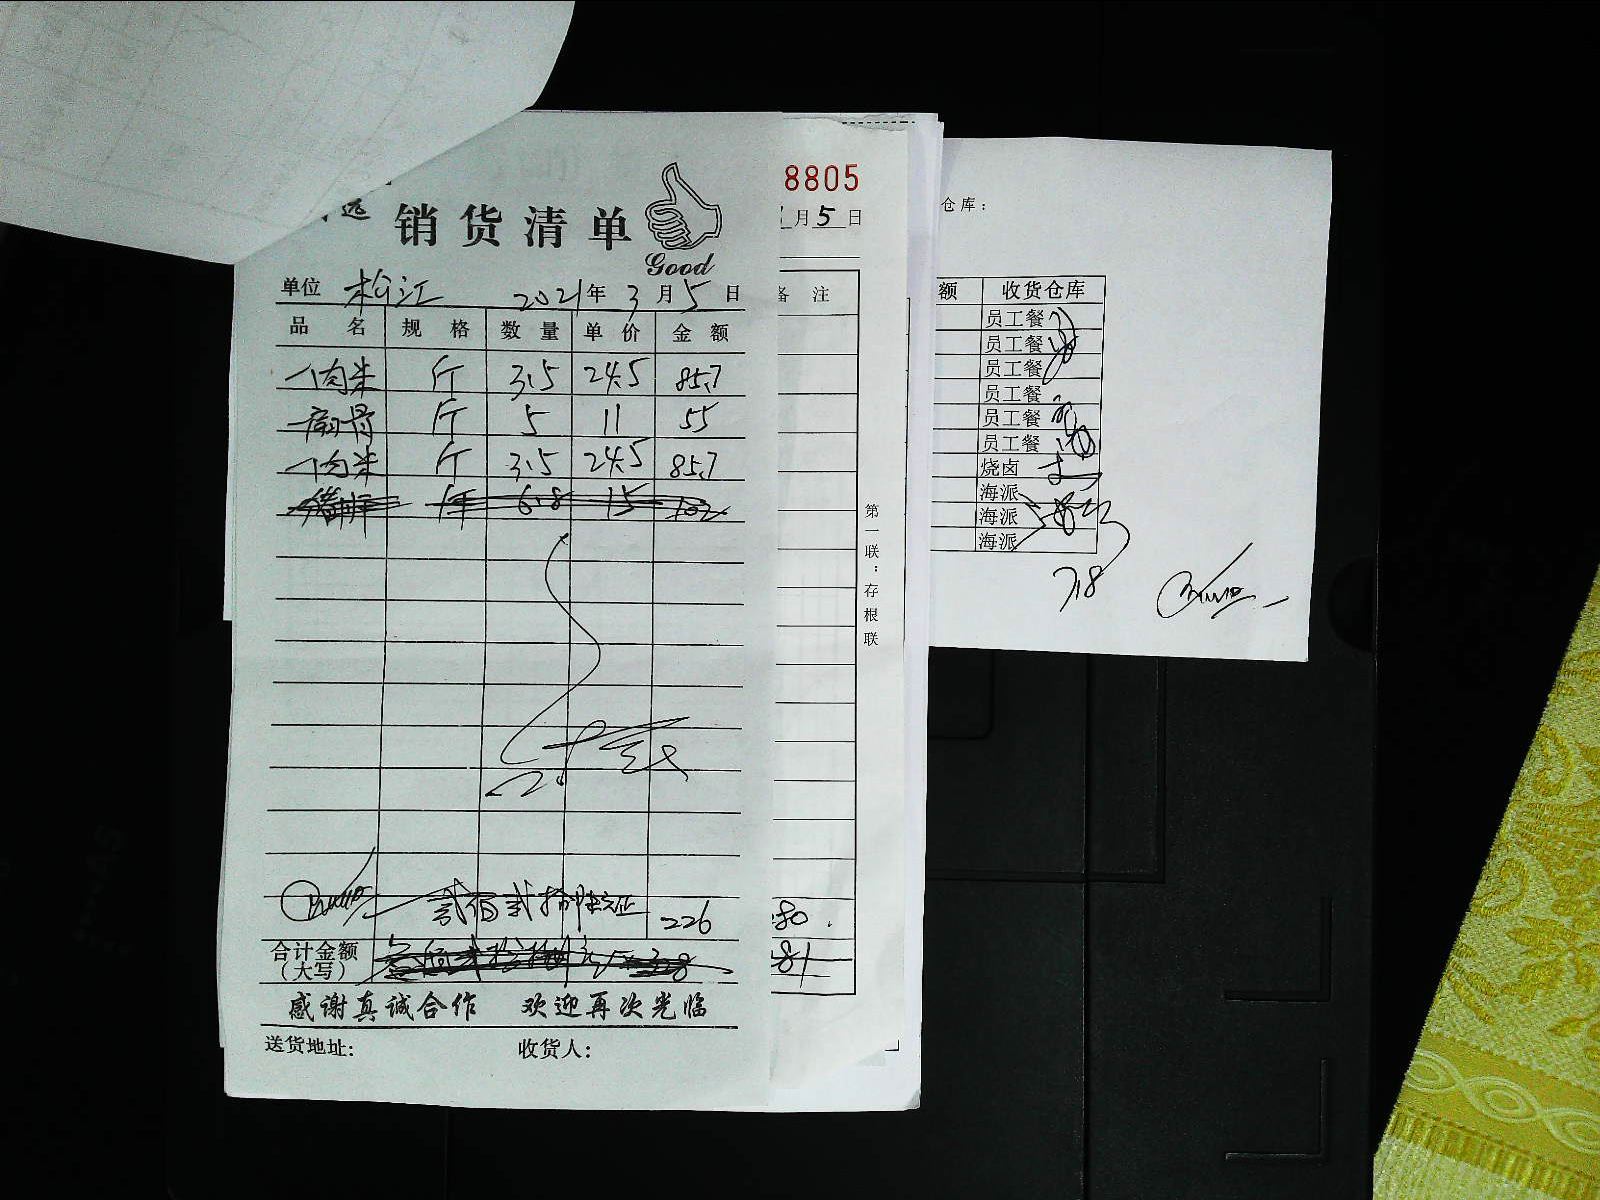 销货清单
Good
单位 松江 2021年3月5日
品名 规格 数量 单价 金额
肉米 斤 3.5 24.5 85.7
扇骨 斤 5 11 55
肉米 斤 3.5 24.5 85.7
6.8 15 102
贰佰贰拾陆元正 226
合计金额
(大写)
感谢真诚合作 欢迎再次光临
送货地址: 收货人:
8805
月5日
备注
第一联:存根联
80.
81
仓库:
额 收货仓库
员工餐
员工餐
员工餐
员工餐
员工餐
员工餐
烧卤
海派
海派
海派